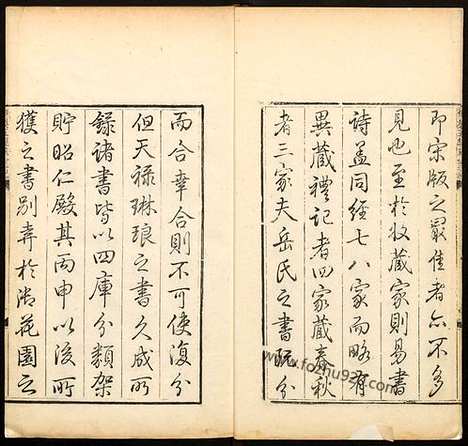 即宋版之最佳者亦不多
見也至於收藏家則易書
詩蓋同經七八家而略有
異藏禮記者四家藏春秋
者三家夫岳氏之書既分
而合幸合則不可使復分
但天祿琳琅之書久成所
錄諸書皆以四庫分類架
貯昭仁殿其丙申以後所
獲之書別弆於御花園之